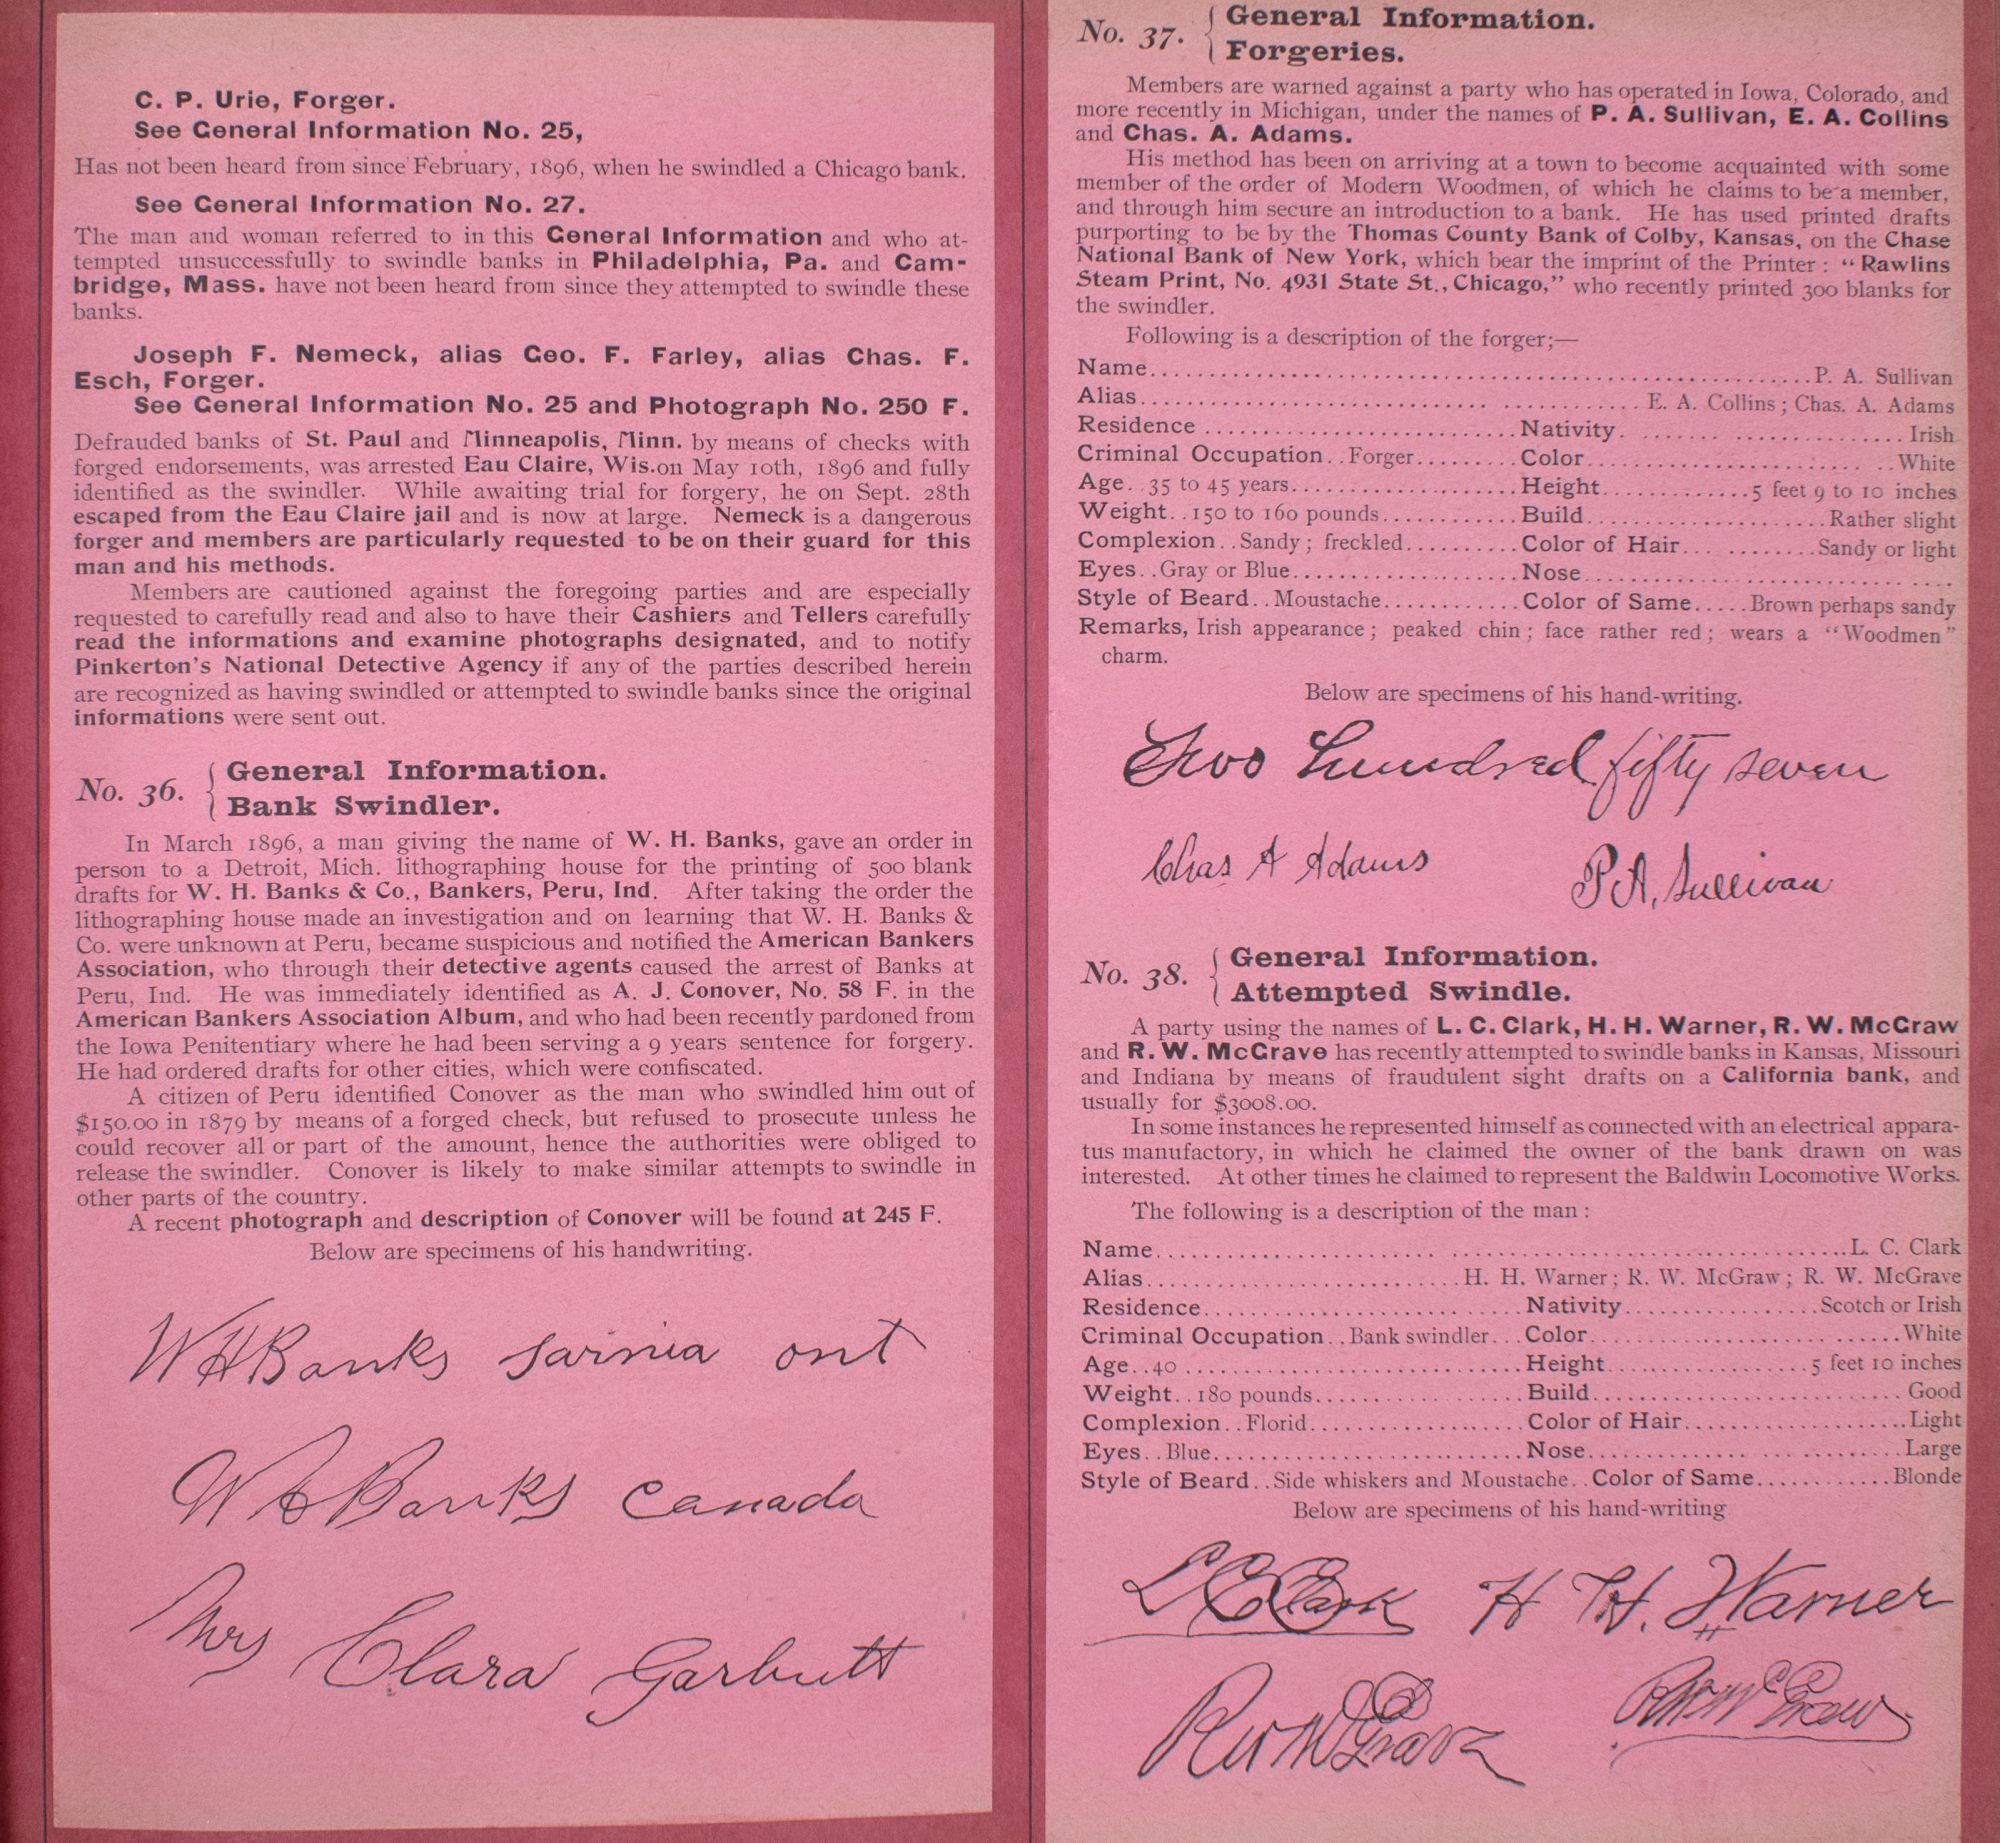 C. P. Urie, Forger.
See General Information No. 25,
Has not been heard from since February, 1896, when he swindled a Chicago bank.
See General Information No. 27.
The man and woman referred to in this General Information and who at-
tempted unsuccessfully to swindle banks in Philadelphia, Pa. and Cam-
bridge, Mass. have not been heard from since they attempted to swindle these
banks.
Joseph F. Nemeck, alias Geo. F. Farley, alias Chas. F.
Esch, Forger.
See General Information No. 25 and Photograph No. 250 F.
Defrauded banks of St. Paul and Minneapolis, Minn. by means of checks with
forged endorsements, was arrested Eau Claire, Wis. on May 10th, 1896 and fully
identified as the swindler. While awaiting trial for forgery, he on Sept. 28th
escaped from the Eau Claire jail and is now at large. Nemeck is a dangerous
forger and members are particularly requested to be on their guard for this
man and his methods.
Members are cautioned against the foregoing parties and are especially
requested to carefully read and also to have their Cashiers and Tellers carefully
read the informations and examine photographs designated, and to notify
Pinkerton's National Detective Agency if any of the parties described herein
are recognized as having swindled or attempted to swindle banks since the original
informations were sent out.
No. 36. { General Information.
Bank Swindler.
In March 1896, a man giving the name of W. H. Banks, gave an order in
person to a Detroit, Mich. lithographing house for the printing of 500 blank
drafts for W. H. Banks & Co., Bankers, Peru, Ind. After taking the order the
lithographing house made an investigation and on learning that W. H. Banks &
Co. were unknown at Peru, became suspicious and notified the American Bankers
Association, who through their detective agents caused the arrest of Banks at
Peru, Ind. He was immediately identified as A. J. Conover, No. 58 F. in the
American Bankers Association Album, and who had been recently pardoned from
the Iowa Penitentiary where he had been serving a 9 years sentence for forgery.
He had ordered drafts for other cities, which were confiscated.
A citizen of Peru identified Conover as the man who swindled him out of
$150.00 in 1879 by means of a forged check, but refused to prosecute unless he
could recover all or part of the amount, hence the authorities were obliged to
release the swindler. Conover is likely to make similar attempts to swindle in
other parts of the country.
A recent photograph and description of Conover will be found at 245 F.
Below are specimens of his handwriting.
W H Banks sarnia ont
W H Banks canada
Mrs Clara Garbutt
No. 37. { General Information.
Forgeries.
Members are warned against a party who has operated in Iowa, Colorado, and
more recently in Michigan, under the names of P. A. Sullivan, E. A. Collins
and Chas. A. Adams.
His method has been on arriving at a town to become acquainted with some
member of the order of Modern Woodmen, of which he claims to be a member,
and through him secure an introduction to a bank. He has used printed drafts
purporting to be by the Thomas County Bank of Colby, Kansas, on the Chase
National Bank of New York, which bear the imprint of the Printer: "Rawlins
Steam Print, No. 4931 State St., Chicago," who recently printed 300 blanks for
the swindler.
Following is a description of the forger;—
Name....P. A. Sullivan
Alias....E. A. Collins; Chas. A. Adams
Residence....Nativity....Irish
Criminal Occupation..Forger....Color....White
Age..35 to 45 years....Height....5 feet 9 to 10 inches
Weight..150 to 160 pounds....Build....Rather slight
Complexion..Sandy; freckled....Color of Hair....Sandy or light
Eyes..Gray or Blue....Nose....
Style of Beard..Moustache....Color of Same....Brown perhaps sandy
Remarks, Irish appearance; peaked chin; face rather red; wears a "Woodmen"
charm.
Below are specimens of his hand-writing.
Two Hundred fifty seven
Chas A Adams P. A. Sullivan
No. 38. { General Information.
Attempted Swindle.
A party using the names of L. C. Clark, H. H. Warner, R. W. McGraw
and R. W. McGrave has recently attempted to swindle banks in Kansas, Missouri
and Indiana by means of fraudulent sight drafts on a California bank, and
usually for $3008.00.
In some instances he represented himself as connected with an electrical appara-
tus manufactory, in which he claimed the owner of the bank drawn on was
interested. At other times he claimed to represent the Baldwin Locomotive Works.
The following is a description of the man:
Name....L. C. Clark
Alias....H. H. Warner; R. W. McGraw; R. W. McGrave
Residence....Nativity....Scotch or Irish
Criminal Occupation..Bank swindler...Color....White
Age..40....Height....5 feet 10 inches
Weight..180 pounds....Build....Good
Complexion..Florid....Color of Hair....Light
Eyes..Blue....Nose....Large
Style of Beard..Side whiskers and Moustache..Color of Same....Blonde
Below are specimens of his hand-writing
L C Clark H. H. Warner
R W McGrave R W McGraw